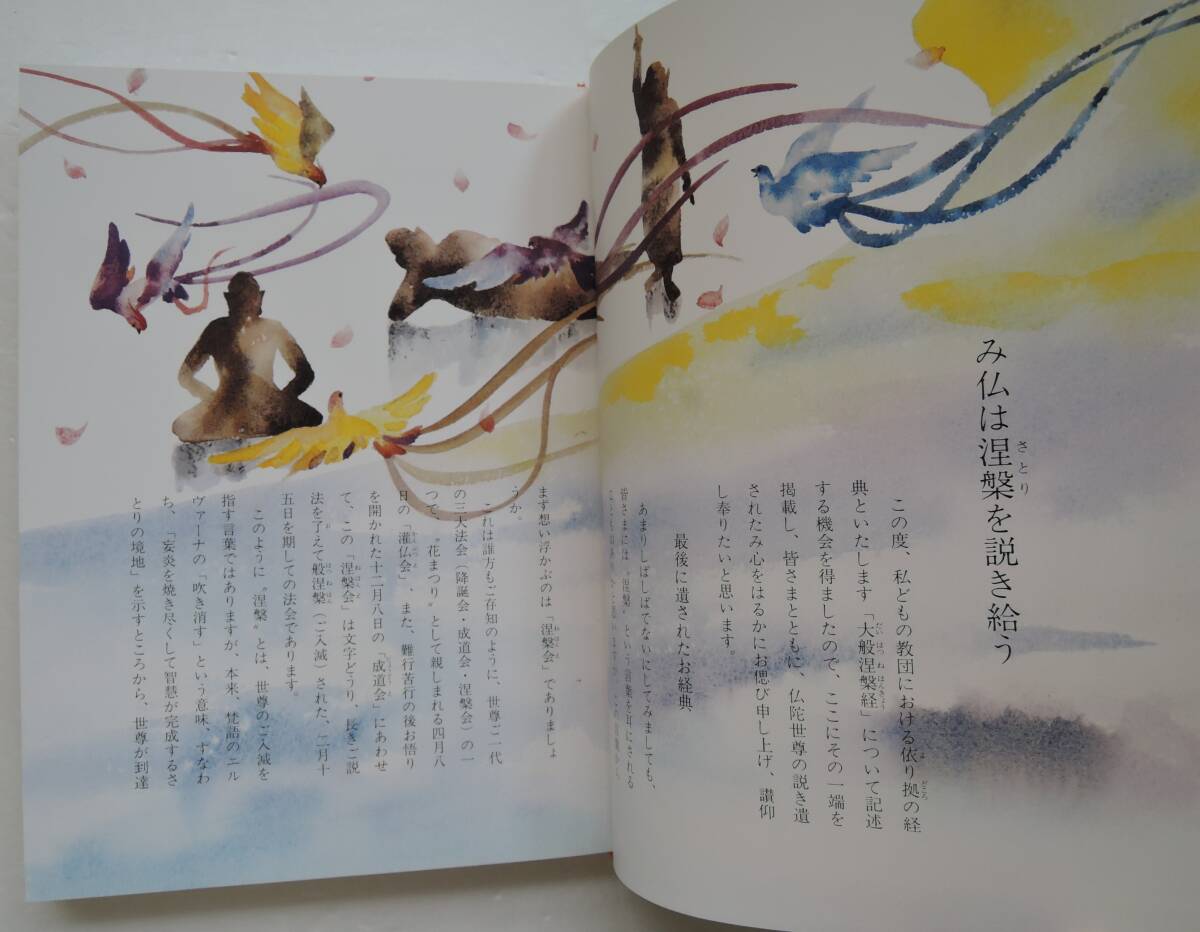 み仏は涅槃を説き給う
さとり
この度、私どもの教団における依り拠の経
よ どころ
典といたします「大般涅槃経」について記述
だいはつねはんきょう
する機会を得ましたので、ここにその一端を
掲載し、皆さまとともに、仏陀世尊の説き遺
されたみ心をはるかにお偲び申し上げ、讃仰
し奉りたいと思います。
最後に遺されたお経典
あまりしばしばでないにしてみましても、
皆さまには〝涅槃〟という言葉を耳にされる
まず想い浮かぶのは「涅槃会」でありましょ
ねはんえ
うか。
これは誰方もご存知のように、世尊ご一代
の三大法会(降誕会・成道会・涅槃会)の一
つで、〝花まつり〟として親しまれる四月八
日の「灌仏会」、また、難行苦行の後お悟り
かんぶつえ
を開かれた十二月八日の「成道会」にあわせ
じょうどうえ
て、この「涅槃会」は文字どおり、長きご説
ねはんえ
法を了えて般涅槃(ご入滅)された、二月十
お はつねはん
五日を期しての法会であります。
このように〝涅槃〟とは、世尊のご入滅を
指す言葉ではありますが、本来、梵語のニル
ヴァーナの「吹き消す」という意味、すなわ
ち、「妄炎を焼き尽くして智慧が完成するさ
とりの境地」を示すところから、世尊が到達